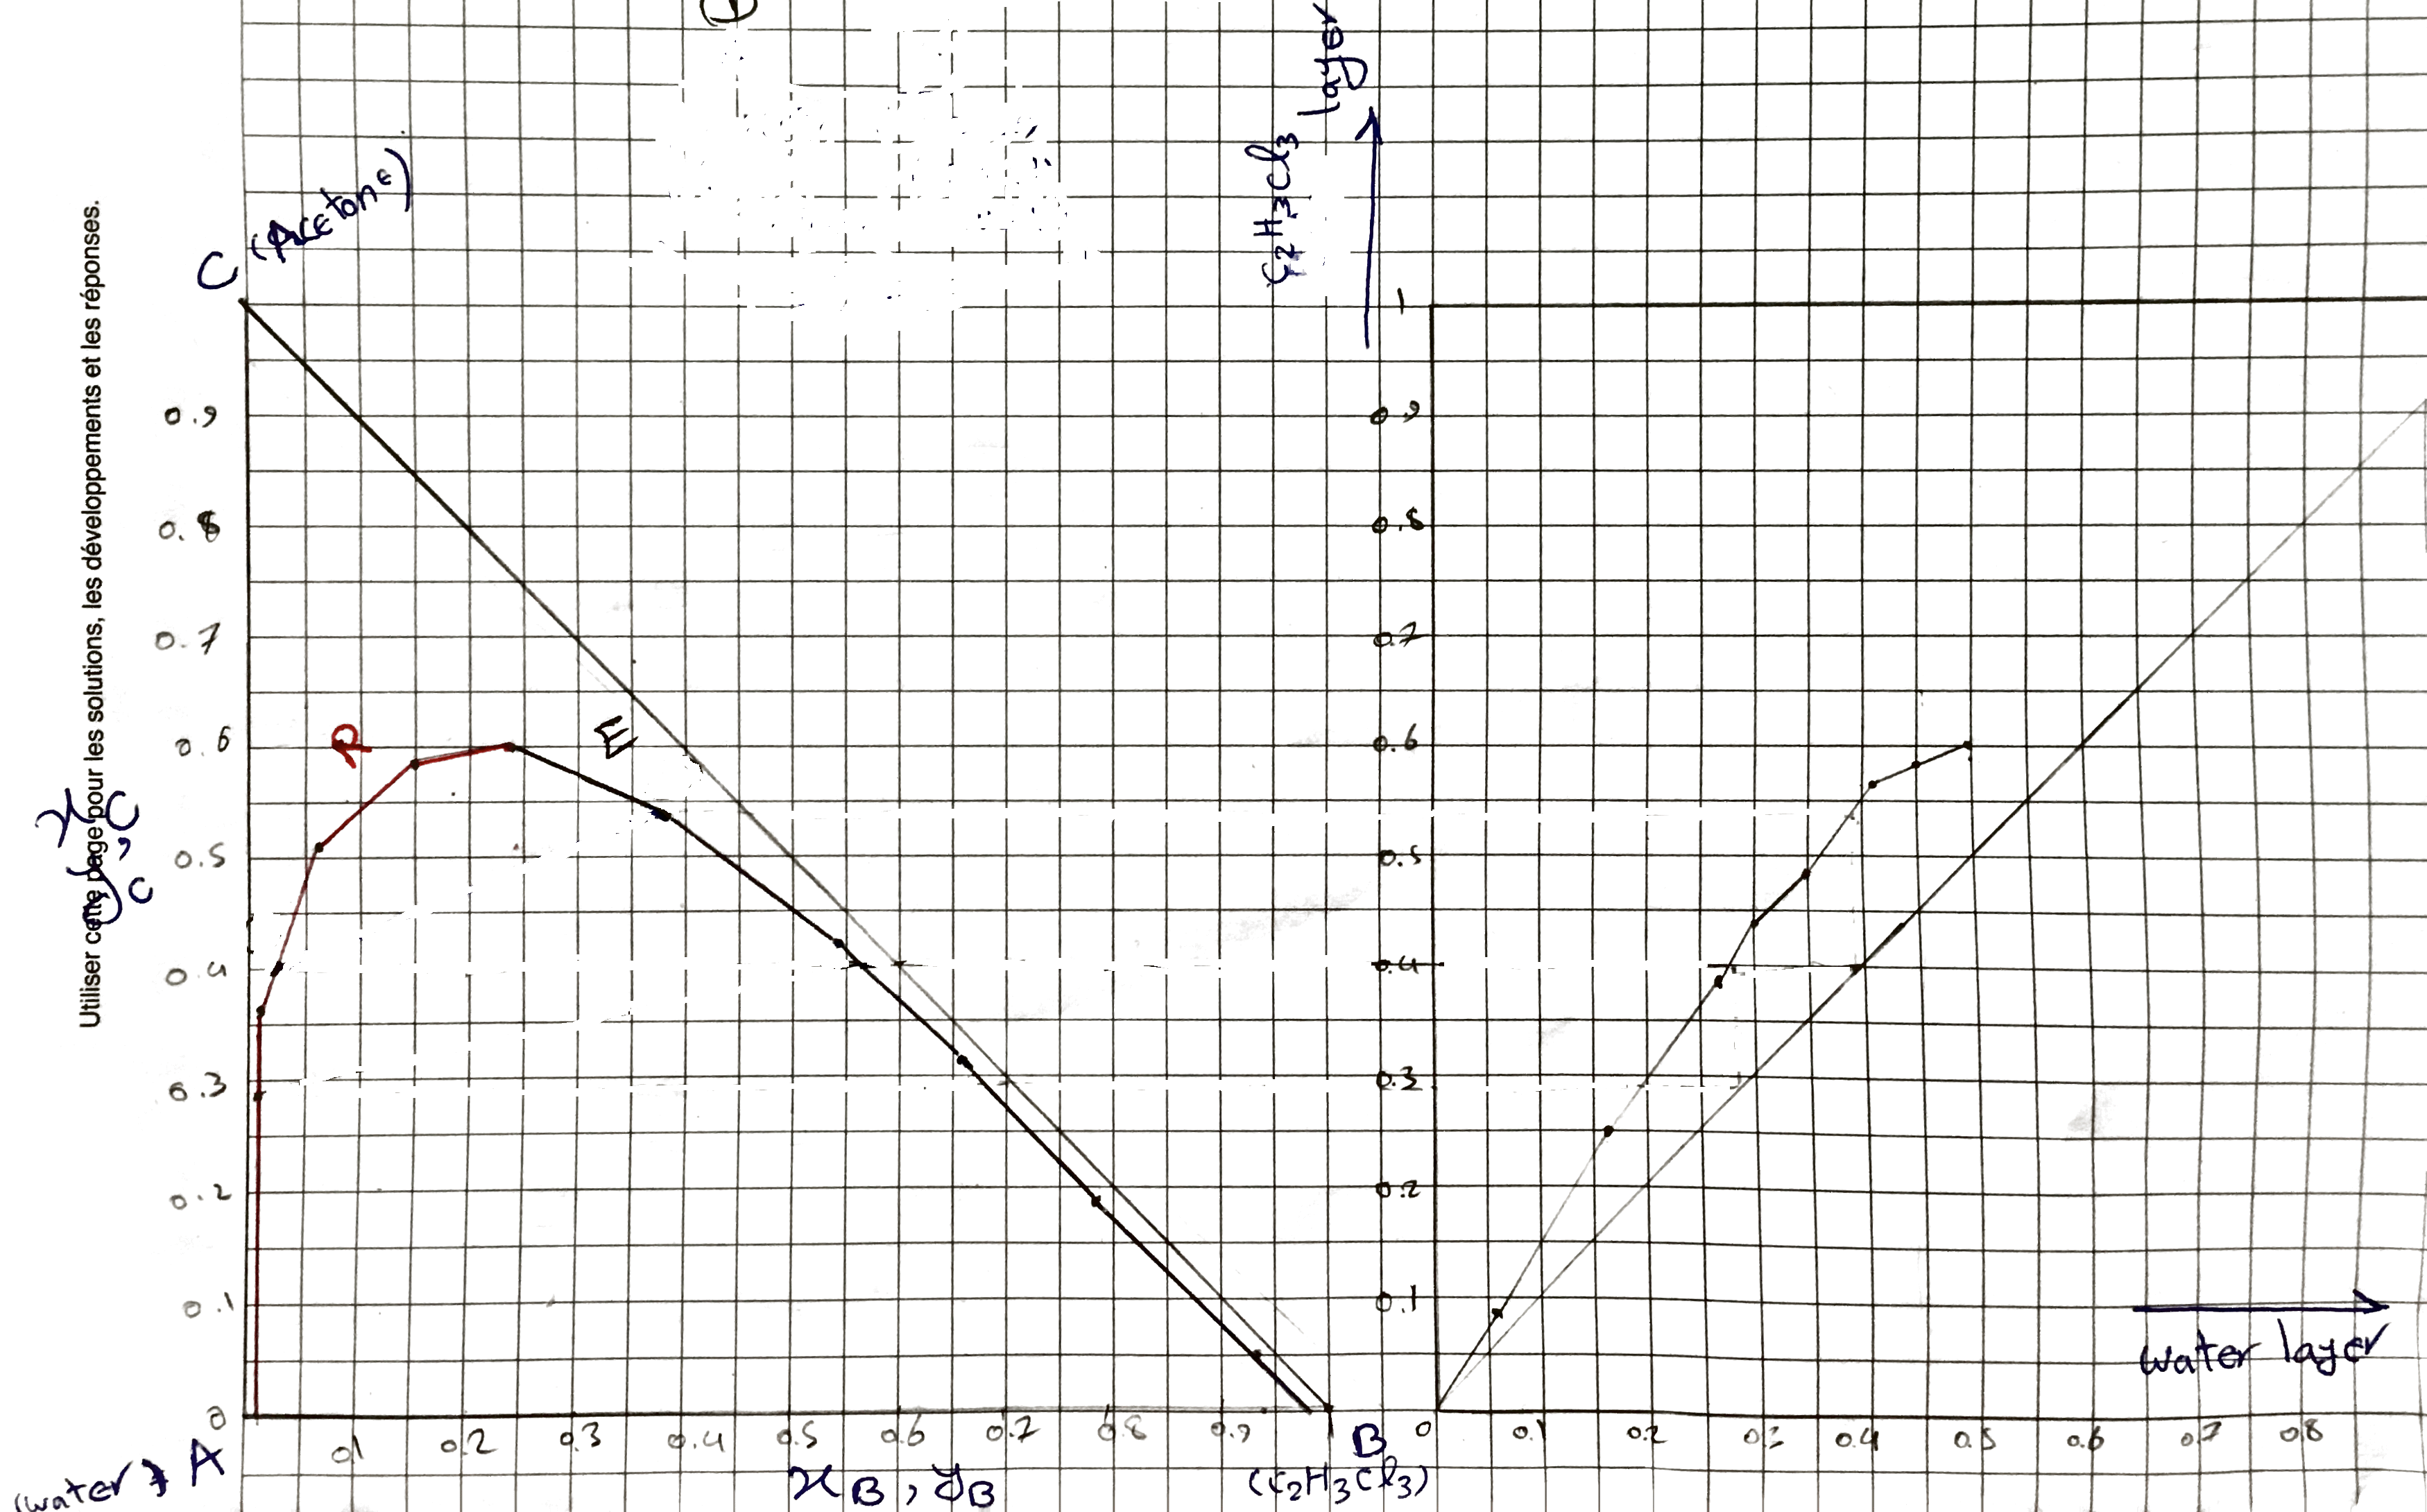 1
C₂H₃Cl₃ layer
Utiliser cette page pour les solutions, les développements et les réponses.
C (Acetone)
0.9
0.8
0.7
0.6
0.5
0.4
0.3
0.2
0.1
0
x_C, y_C
R
E
0.1 0.2 0.3 0.4 0.5 0.6 0.7 0.8 0.9 1
(water) A
x_B, y_B
B
(C₂H₃Cl₃)
1
0.9
0.8
0.7
0.6
0.5
0.4
0.3
0.2
0.1
0 0.1 0.2 0.3 0.4 0.5 0.6 0.7 0.8
water layer